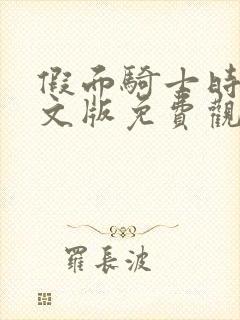 假面騎士時
文版免費觀
羅長波